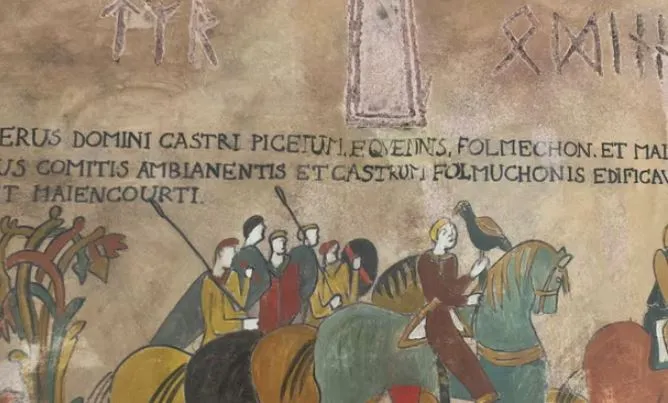 ERUS DOMINI CASTRI PICETUM, EQVENNIS, FOLMECHON. ET MAI
US COMITIS AMBIANENTIS ET CASTRUM FOLMUCHONIS EDIFICAV
T HAIENCOURTI.